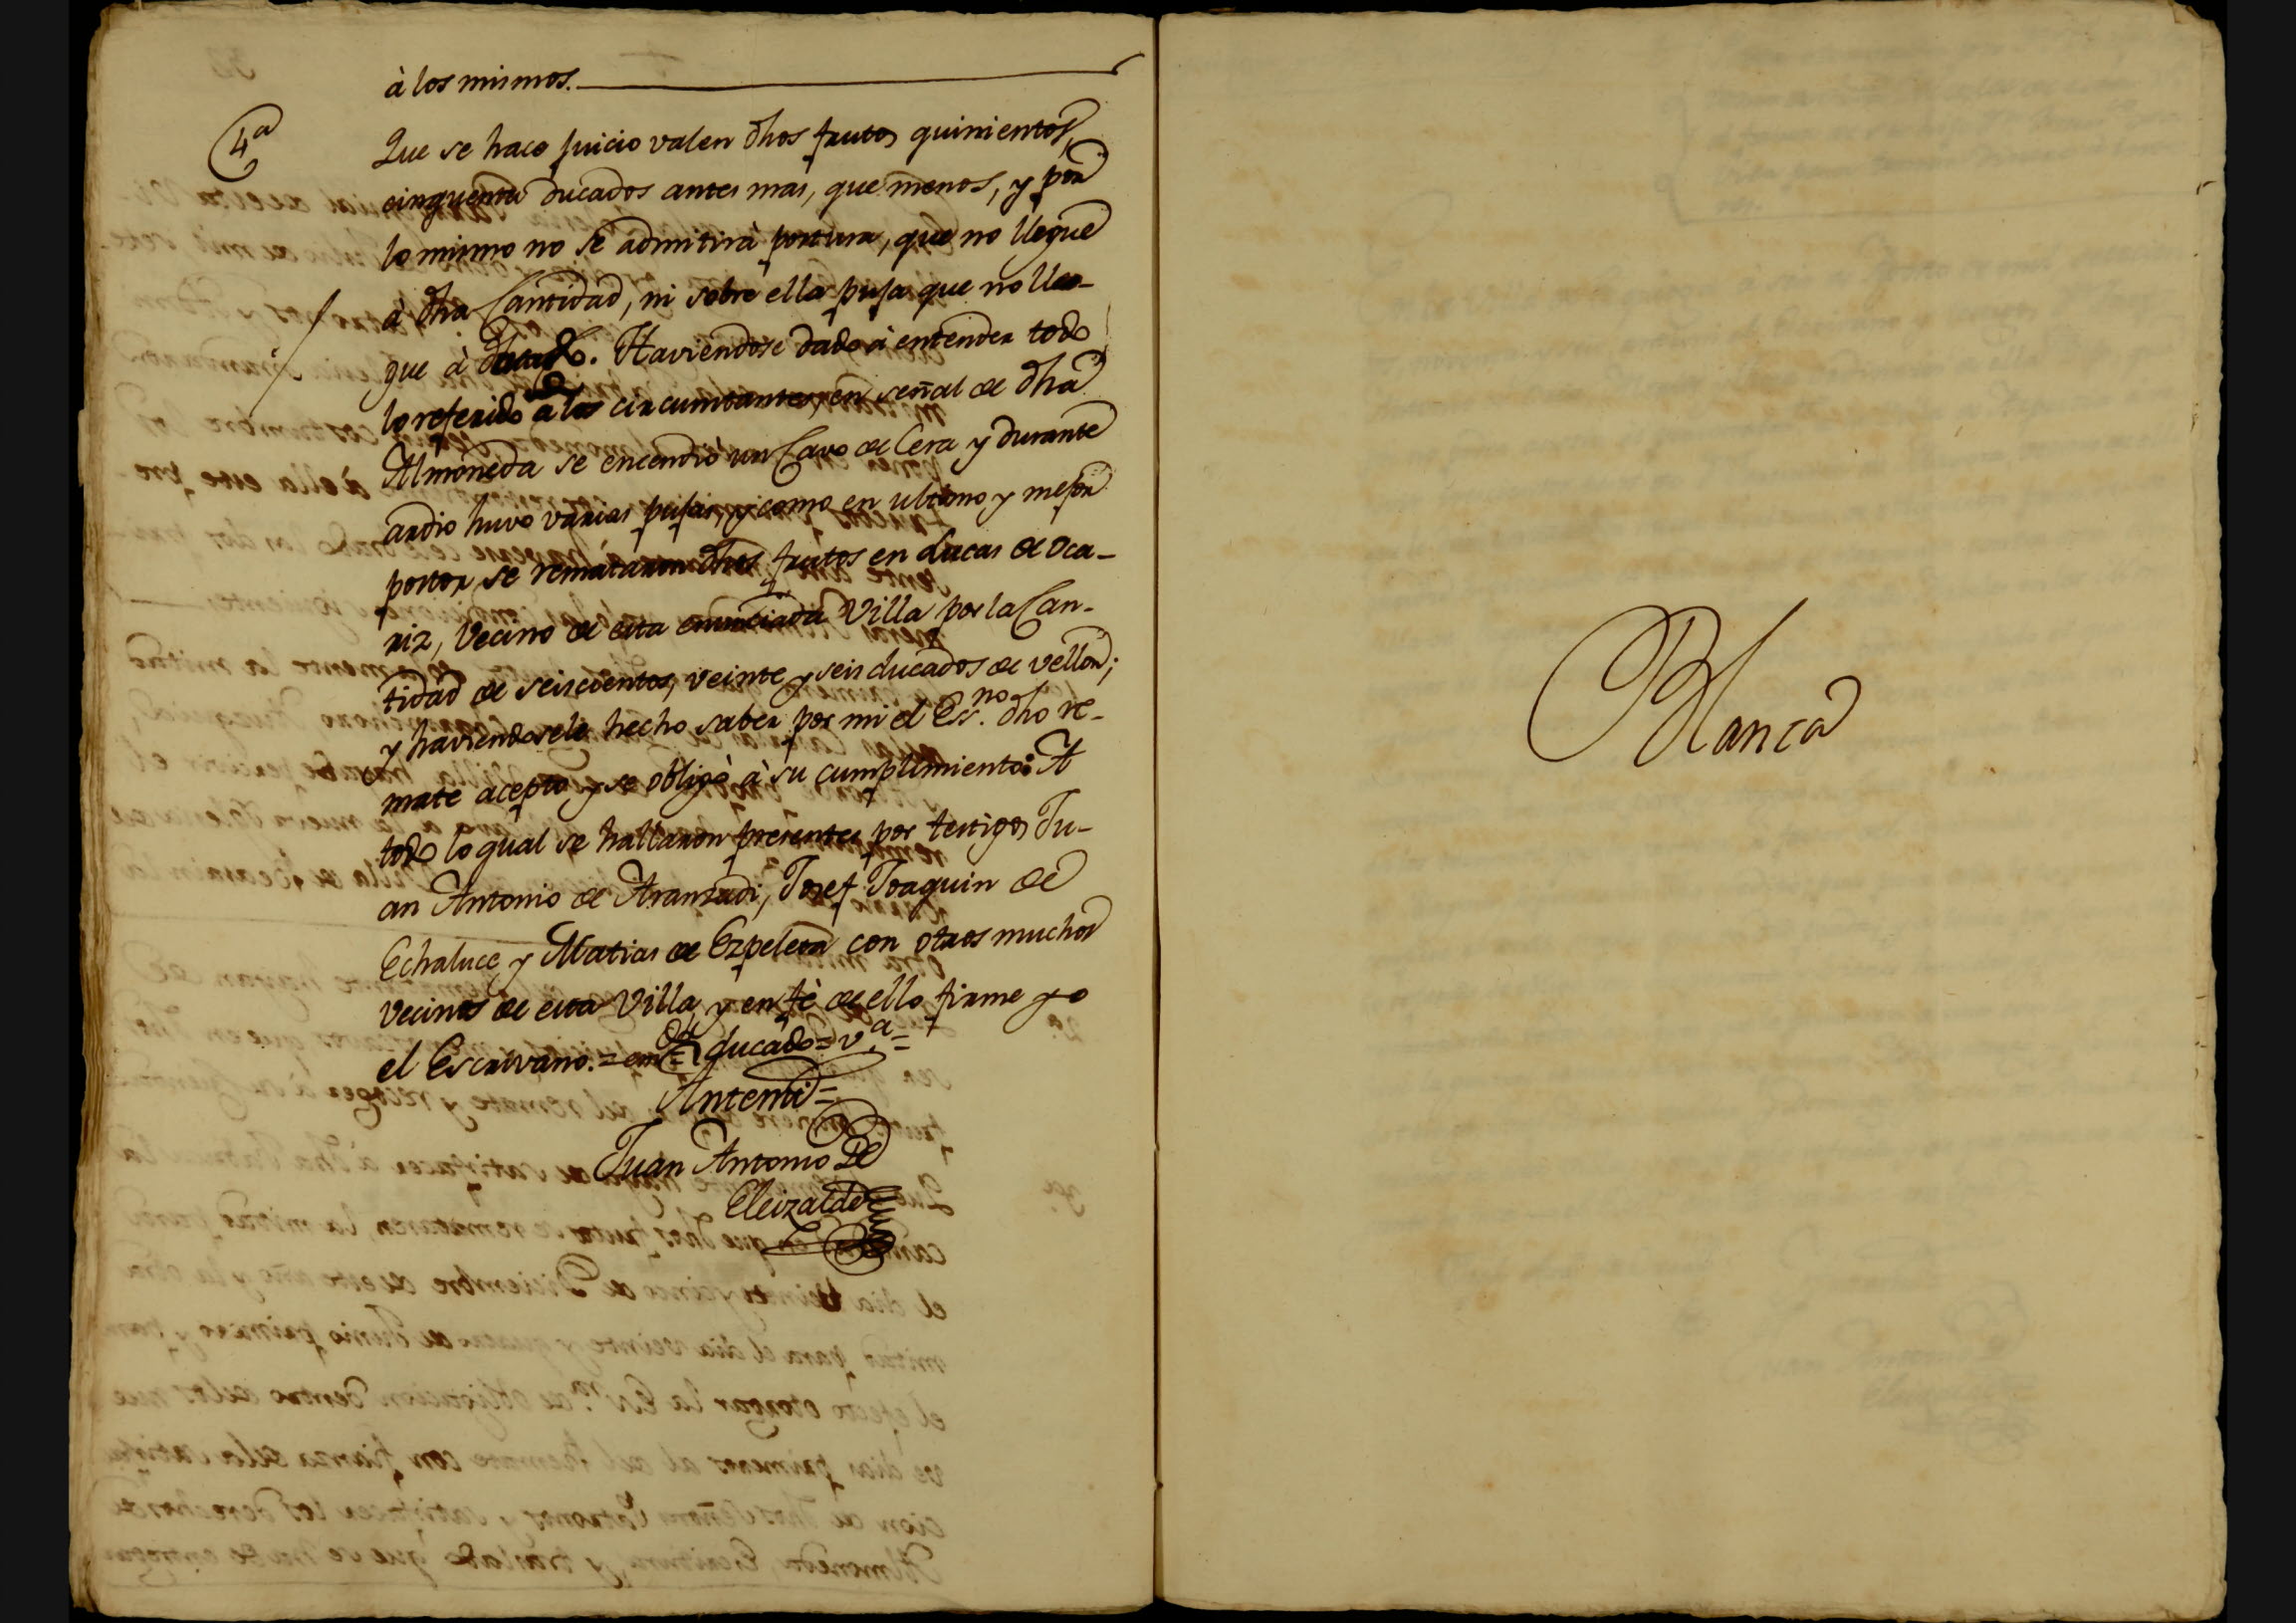 à los mismos.
4ª
Que se hace juicio valen dhos frutos quinientos,
cinquenta ducados antes mas, que menos, y por
lo mismo no se admitirà postura, que no llegue
à dha Cantidad, ni sobre ella puja que no lle-
que à ducado. Haviendose dado à entender todo
lo referido à los circunstantes, en señal de dha
Almoneda se encendiò un Cavo de Cera y durante
ardio huvo varias pujas, y como en ultimo y mejor
postor se remataron dhos frutos en Lucas de Oca-
riz, Vecino de esta enunciada Villa por la Can-
tidad de seiscientos, veinte y seis ducados de vellon;
y haviendosele hecho saber por mi el Es.no dho re-
mate acepto y se obligò à su cumplimiento: A
todo lo qual se hallaron presentes por testigos Ju-
an Antonio de Aranzadi, Josef Joaquin de
Echaluce y Matias de Ezpeleta con otros muchos
vecinos de esta Villa, y en fè de ello firme yo
el Escrivano. = em.do = ducado = v.a =
Antemi =
Juan Antonio De
Eleizalde
Blanca